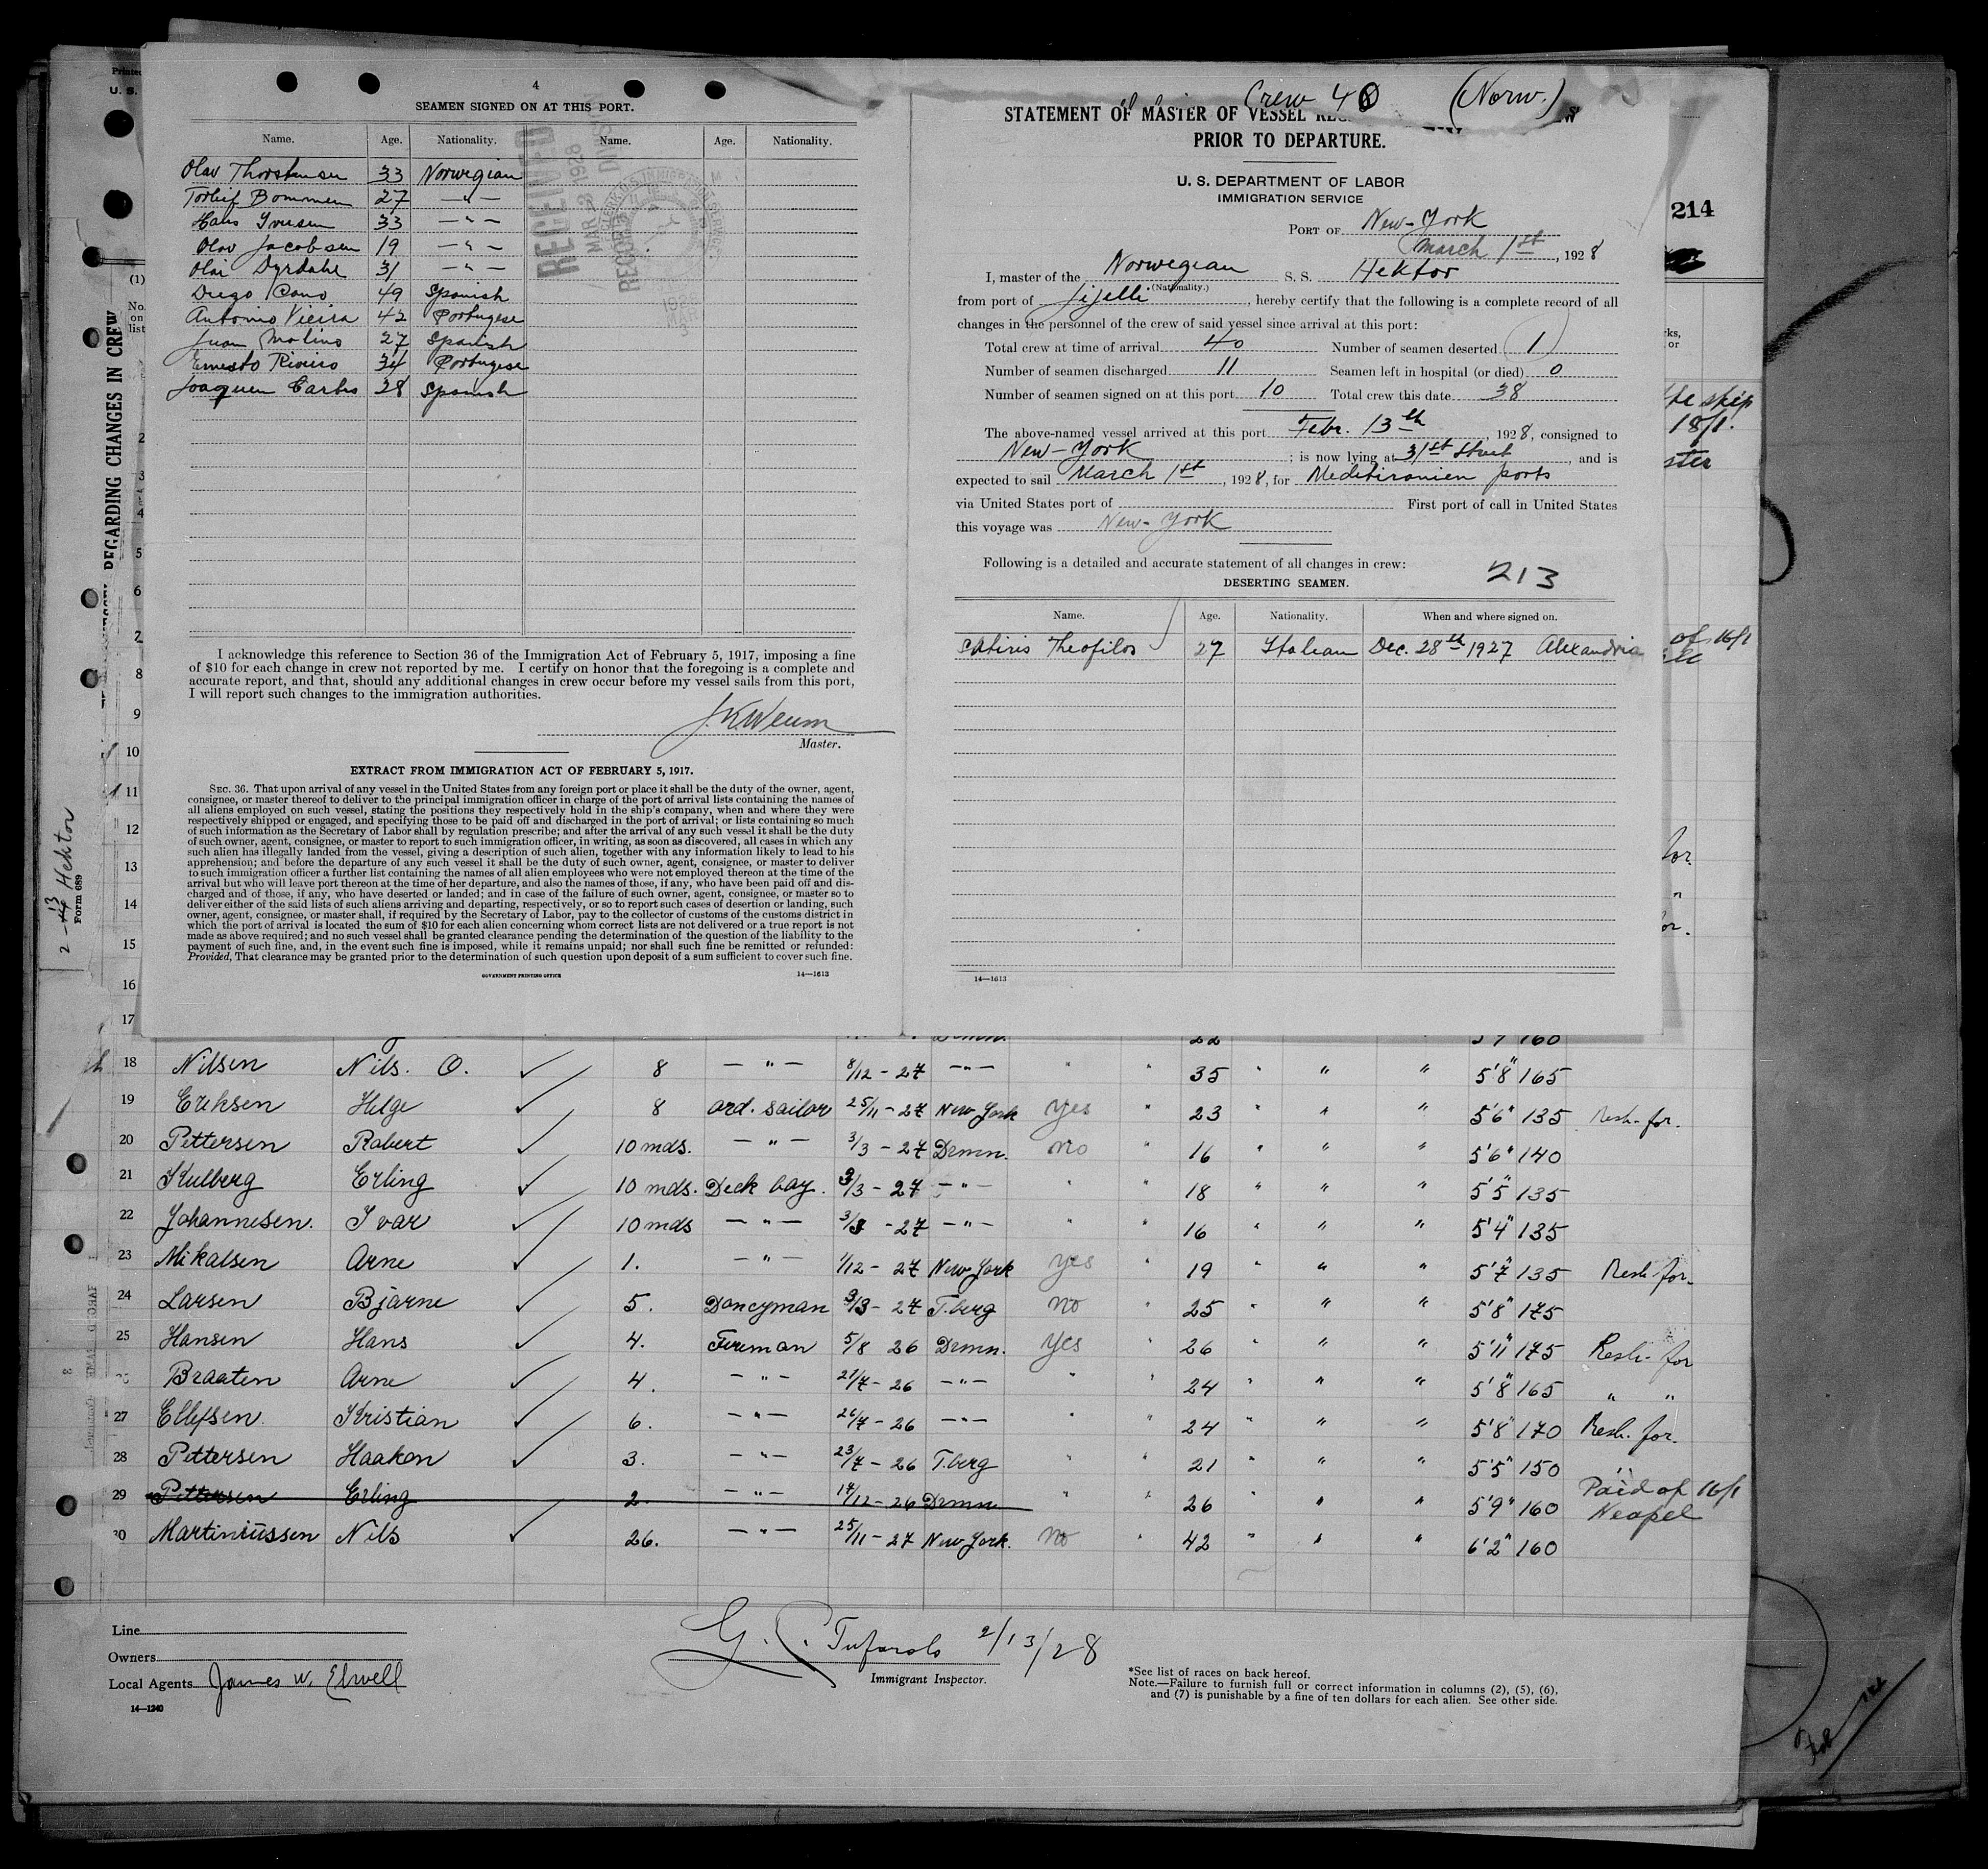 Printed
U. S.
REGARDING CHANGES IN CREW
2-13 Hektor
Form 689
4
SEAMEN SIGNED ON AT THIS PORT.
Name. Age. Nationality. Name. Age. Nationality.
Olav Thorstensen 33 Norwegian
Torleif Bommen 27 — " —
Hans Iversen 33 — " —
Olav Jacobsen 19 — " —
Olai Dyrdahl 31 — " —
Diego Cano 49 Spanish
Antonio Vieira 42 Portugese
Juan Molino 27 Spanish
Ernesto Riveiro 34 Portugese
Joaquen Carbes 28 Spanish
RECEIVED
MAR -3 1928
I acknowledge this reference to Section 36 of the Immigration Act of February 5, 1917, imposing a fine
of $10 for each change in crew not reported by me. I certify on honor that the foregoing is a complete and
accurate report, and that, should any additional changes in crew occur before my vessel sails from this port,
I will report such changes to the immigration authorities.
J. K. Weum
Master.
EXTRACT FROM IMMIGRATION ACT OF FEBRUARY 5, 1917.
SEC. 36. That upon arrival of any vessel in the United States from any foreign port or place it shall be the duty of the owner, agent,
consignee, or master thereof to deliver to the principal immigration officer in charge of the port of arrival lists containing the names of
all aliens employed on such vessel, stating the positions they respectively hold in the ship's company, when and where they were
respectively shipped or engaged, and specifying those to be paid off and discharged in the port of arrival; or lists containing so much
of such information as the Secretary of Labor shall by regulation prescribe; and after the arrival of any such vessel it shall be the duty
of such owner, agent, consignee, or master to report to such immigration officer, in writing, as soon as discovered, all cases in which any
such alien has illegally landed from the vessel, giving a description of such alien, together with any information likely to lead to his
apprehension; and before the departure of any such vessel it shall be the duty of such owner, agent, consignee, or master to deliver
to such immigration officer a further list containing the names of all alien employees who were not employed thereon at the time of the
arrival but who will leave port thereon at the time of her departure, and also the names of those, if any, who have been paid off and dis-
charged and of those, if any, who have deserted or landed; and in case of the failure of such owner, agent, consignee, or master so to
deliver either of the said lists of such aliens arriving and departing, respectively, or so to report such cases of desertion or landing, such
owner, agent, consignee, or master shall, if required by the Secretary of Labor, pay to the collector of customs of the customs district in
which the port of arrival is located the sum of $10 for each alien concerning whom correct lists are not delivered or a true report is not
made as above required; and no such vessel shall be granted clearance pending the determination of the question of the liability to the
payment of such fine, and, in the event such fine is imposed, while it remains unpaid; nor shall such fine be remitted or refunded:
Provided, That clearance may be granted prior to the determination of such question upon deposit of a sum sufficient to cover such fine.
GOVERNMENT PRINTING OFFICE 14—1613
Crew 40 (Norw.)
STATEMENT OF MASTER OF VESSEL
PRIOR TO DEPARTURE.
U. S. DEPARTMENT OF LABOR
IMMIGRATION SERVICE
PORT OF New-York
March 1st, 1928
I, master of the Norwegian S. S. Hektor
(Nationality.)
from port of Jijelli, hereby certify that the following is a complete record of all
changes in the personnel of the crew of said vessel since arrival at this port:
Total crew at time of arrival 40 Number of seamen deserted 1
Number of seamen discharged 11 Seamen left in hospital (or died) 0
Number of seamen signed on at this port 10 Total crew this date 38
The above-named vessel arrived at this port Febr. 13th, 1928, consigned to
New-York; is now lying at 31st Street, and is
expected to sail March 1st, 1928, for Mediteranien ports
via United States port of First port of call in United States
this voyage was New-York
Following is a detailed and accurate statement of all changes in crew:
213
DESERTING SEAMEN.
Name. Age. Nationality. When and where signed on.
Satiris Theofilos 27 Italian Dec. 28th 1927 Alexandria
14—1613
214
the ship
18/1.
of 16/1
for.
"
or.
(1)
No.
on
list
2
3
4
5
6
7
8
9
10
11
12
13
14
15
16
17 22 5'7" 160
18 Nilsen Nils. O. 8 — " — 8/12 - 27 — " — " " 35 " " " 5'8" 165
19 Eriksen Helge 8 ord. sailor 25/11 - 27 New York yes " 23 " " " 5'6" 135 Resh. for.
20 Pettersen Robert 10 mds. — " — 3/3 - 27 Drmn. no " 16 " " " 5'6" 140
21 Kulberg Erling 10 mds. Deck boy. 3/3 - 27 — " — " " 18 " " " 5'5" 135
22 Johannesen. Ivar 10 mds — " — 3/3 - 27 — " — " " 16 " " " 5'4" 135
23 Mikalsen Arne 1. — " — 1/12 - 27 New York yes " 19 " " " 5'7" 135 Resh. for.
24 Larsen Bjarne 5. Donceyman 3/3 - 27 T.berg no " 25 " " " 5'8" 175
25 Hansen Hans 4. Fireman 5/8 26 Drmn. yes " 26 " " " 5'11" 175 Resh. for
26 Braaten Arne 4. — " — 21/7 - 26 — " — " " 24 " " " 5'8" 165 " "
27 Ellefsen. Kristian 6. — " — 26/7 - 26 — " — " " 24 " " " 5'8" 170 Resh. for.
28 Pettersen Haakon 3. — " — 23/7 - 26 T.berg " " 21 " " " 5'5" 150 " "
29 Pettersen Erling 2. — " — 14/12 - 26 Drmn " " 26 " " " 5'9" 160 Paid of 16/1 Neapel
30 Martiniussen Nils 26. — " — 25/11 - 27 New York. no " 42 " " " 6'2" 160
Line
Owners
Local Agents James W. Elwell
14—1240
G. C. Tufarolo 2/13/28
Immigrant Inspector.
*See list of races on back hereof.
Note.—Failure to furnish full or correct information in columns (2), (5), (6),
and (7) is punishable by a fine of ten dollars for each alien. See other side.